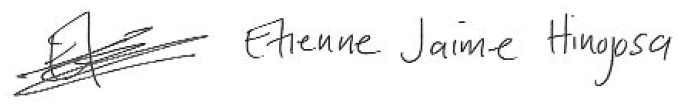 Etienne Jaime Hinojosa